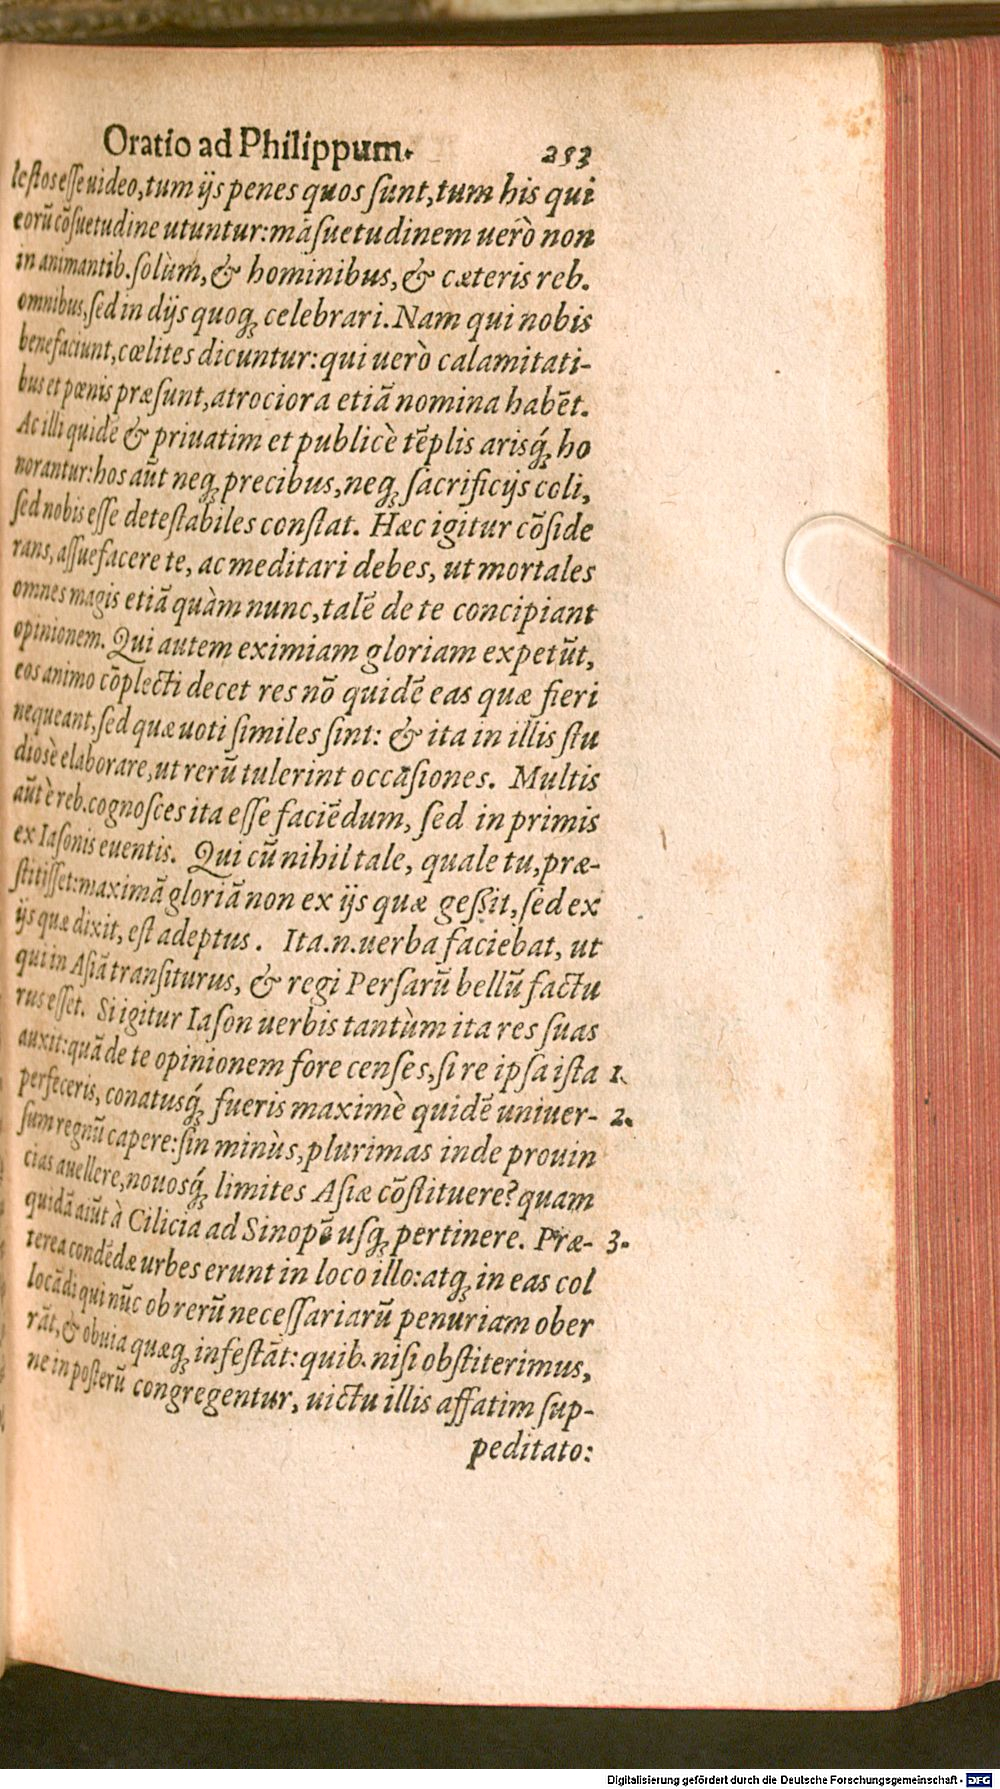 Oratio ad Philippum. 253
lestos esse uideo, tum ijs penes quos sunt, tum his qui
eorũ cõsuetudine utuntur: mãsuetudinem uerò non
in animantib. solùm, & hominibus, & cæteris reb.
omnibus, sed in dijs quoq; celebrari. Nam qui nobis
benefaciunt, cœlites dicuntur: qui uerò calamitati-
bus et pœnis præsunt, atrociora etiã nomina habẽt.
Ac illi quidẽ & priuatim et publicè tẽplis arisq́; ho
norantur: hos aũt neq; precibus, neq; sacrificijs coli,
sed nobis esse detestabiles constat. Hæc igitur cõside
rans, assuefacere te, ac meditari debes, ut mortales
omnes magis etiã quàm nunc, talẽ de te concipiant
opinionem. Qui autem eximiam gloriam expetũt,
eos animo cõplecti decet res nõ quidẽ eas quæ fieri
nequeant, sed quæ uoti similes sint: & ita in illis stu
diosè elaborare, ut rerũ tulerint occasiones. Multis
aũt è reb. cognosces ita esse faciẽdum, sed in primis
ex Iasonis euentis. Qui cũ nihil tale, quale tu, præ-
stitisset: maximã gloriã non ex ijs quæ gessit, sed ex
ijs quæ dixit, est adeptus. Ita.n.uerba faciebat, ut
qui in Asiã transiturus, & regi Persarũ bellũ factu
rus esset. Si igitur Iason uerbis tantùm ita res suas
auxit: quã de te opinionem fore censes, si re ipsa ista 1.
perfeceris, conatusq́; fueris maximè quidẽ uniuer- 2.
sum regnũ capere: sin minùs, plurimas inde prouin
cias auellere, nouosq́; limites Asiæ cõstituere? quam
quidã aiũt à Cilicia ad Sinopẽ usq; pertinere. Præ- 3.
terea condẽdæ urbes erunt in loco illo: atq; in eas col
locãdi qui nũc ob rerũ necessariarũ penuriam ober
rãt, & obuia quæq; infestãt: quib. nisi obstiterimus,
ne in posterũ congregentur, uictu illis affatim sup-
peditato:
Digitalisierung gefördert durch die Deutsche Forschungsgemeinschaft - DFG